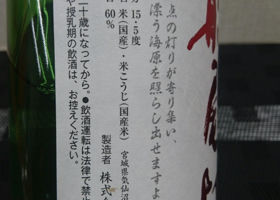 点の灯りが寄り集い、
漂う海原を照らし出せますよ
15・5度
米(国産)・米こうじ(国産米)
60%
宮城県気仙沼
製造者 株式
二十歳になってから。●飲酒運転は法律で禁止
や授乳期の飲酒は、お控えください。